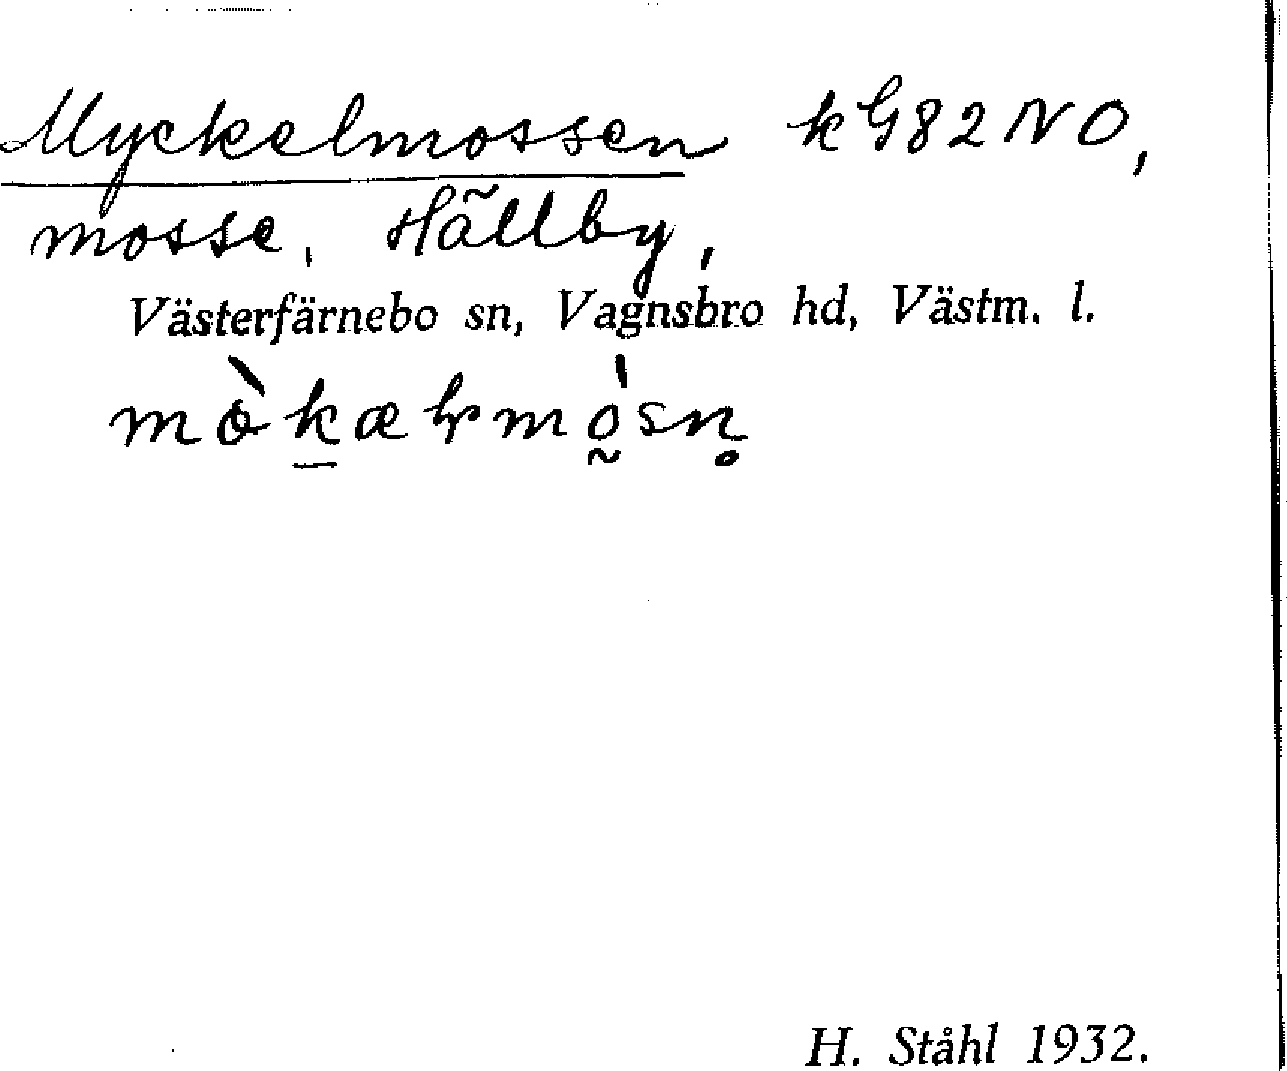 Myckelmossen kG82NO,
mosse, Hällby,
Västerfärnebo sn, Vagnsbro hd, Västm. l.
H. Ståhl 1932.